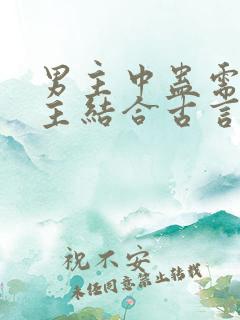 男主中蛊需
主结合古言
祝不安
未经同意禁止转载